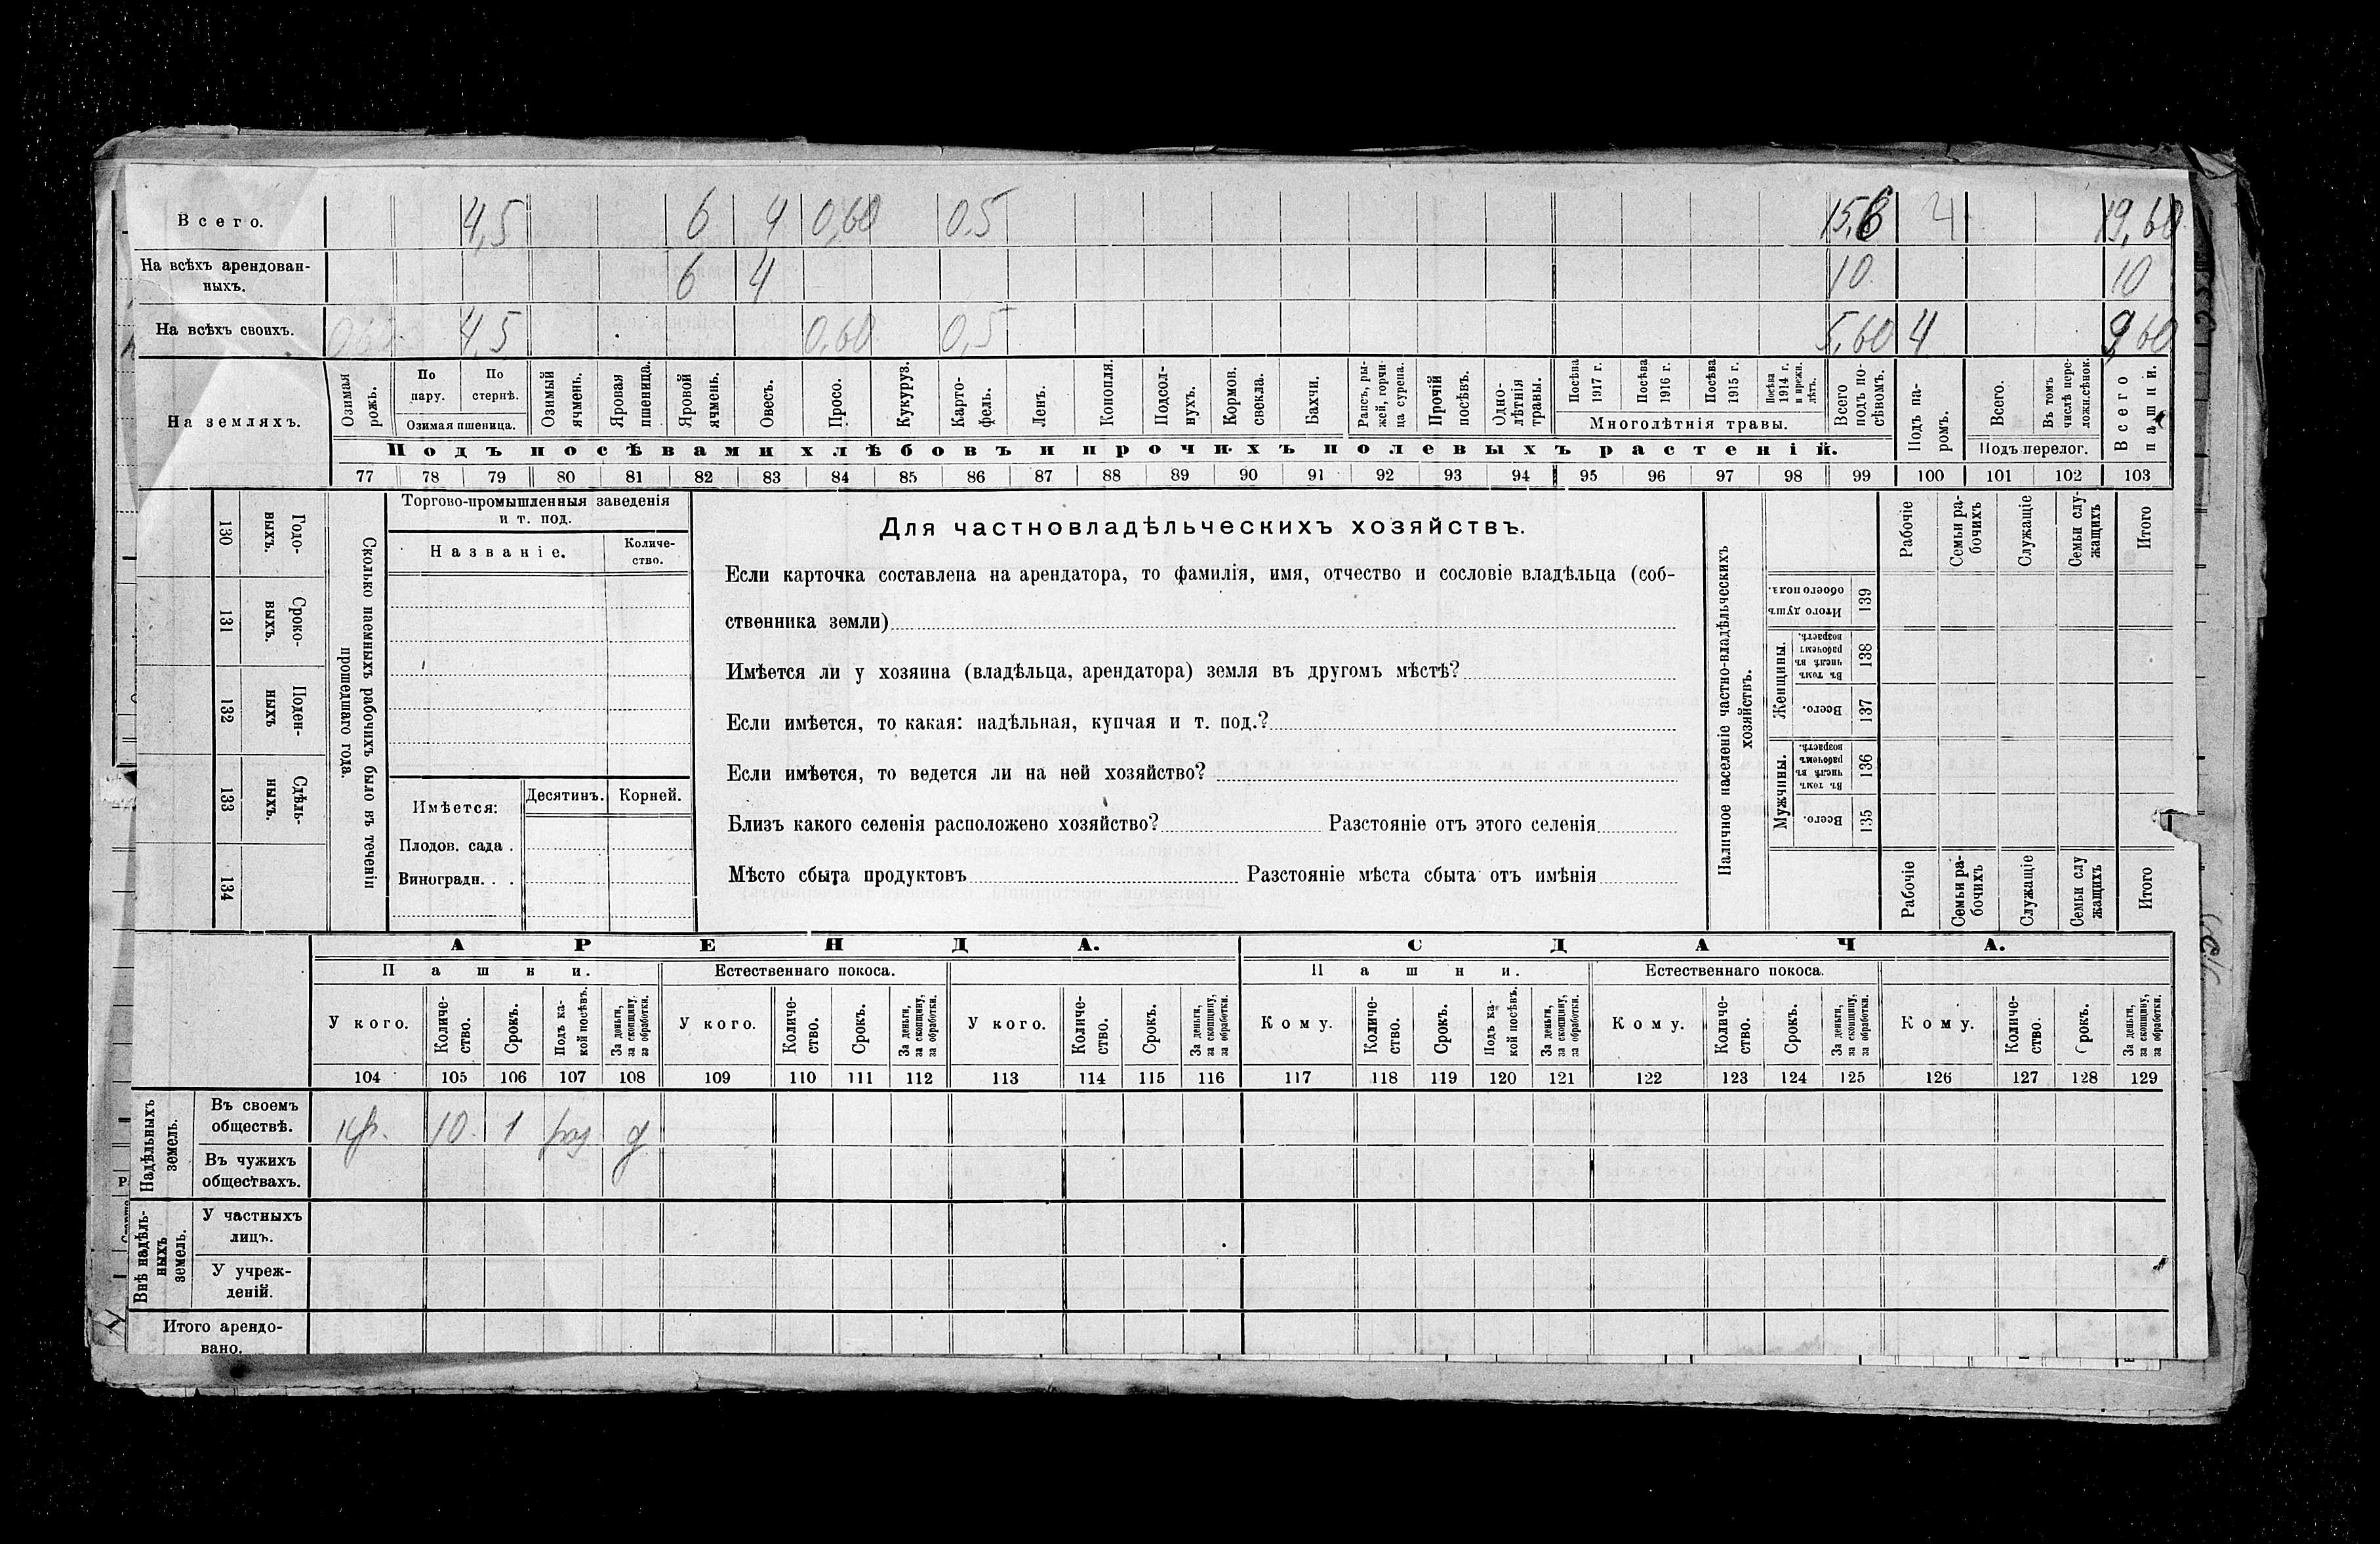 Всего. 4,5 6 4 0,60 0,5 15,6 4 19,60
На всѣхъ арендован-
ныхъ. 6 4 10 10
На всѣхъ своихъ. 4,5 0,60 0,5 5,60 4 9,60
На земляхъ.
Озимая рожь.
По пару.
По стернѣ.
Озимая пшеница.
Озимый ячмень.
Яровая пшеница.
Яровой ячмень.
Овесъ.
Просо.
Кукуруз.
Карто-
фель.
Ленъ.
Конопля.
Подсол-
нухъ.
Кормов.
свекла.
Бахчи.
Рапсъ, ры-
жей, горчи-
ца сурепа.
Прочій
посѣвъ.
Одно-
лѣтнія
травы.
Посѣва
1917 г.
Посѣва
1916 г.
Посѣва
1915 г.
Посѣва
1914 г.
и прежн.
лѣтъ.
Многолѣтнія травы.
Всего
подъ по-
сѣвомъ.
Подъ па-
ромъ.
Всего.
Въ томъ
числѣ пере-
ложн.сѣнок.
Подъ перелог.
Всего
пашни.
Подъ посѣвами хлѣбовъ и прочихъ полевыхъ растеній.
77 78 79 80 81 82 83 84 85 86 87 88 89 90 91 92 93 94 95 96 97 98 99 100 101 102 103
130 Годо-
выхъ.
131 Сроко-
выхъ.
132 Поден-
ныхъ
133 Сдѣль-
ныхъ.
134
Сколько наемныхъ рабочихъ было въ теченіи
прошедшаго года.
Торгово-промышленныя заведенія
и т. под.
Названіе.
Количе-
ство.
Имѣется:
Десятинъ. Корней.
Плодов. сада .
Виноградн. . .
Для частновладѣльческихъ хозяйствъ.
Если карточка составлена на арендатора, то фамилія, имя, отчество и сословіе владѣльца (соб-
ственника земли)
Имѣется ли у хозяина (владѣльца, арендатора) земля въ другомъ мѣстѣ?
Если имѣется, то какая: надѣльная, купчая и т. под.?
Если имѣется, то ведется ли на ней хозяйство?
Близъ какого селенія расположено хозяйство? Разстояніе отъ этого селенія
Мѣсто сбыта продуктовъ Разстояніе мѣста сбыта отъ имѣнія
Наличное населеніе частно-владѣльческихъ
хозяйствъ.
Рабочіе
Семьи ра-
бочихъ
Служащіе
Семьи слу-
жащихъ
Итого
Итого душъ
обоего пола.
139
Женщины.
Въ томъ
числѣ въ
рабочемъ
возрастѣ.
138
Всего.
137
Мужчины.
Въ томъ
числѣ въ
рабочемъ
возрастѣ.
136
Всего.
135
Рабочіе
Семьи ра-
бочихъ
Служащіе
Семьи слу
жащихъ
Итого
АРЕНДА. СДАЧА.
Пашни. Естественнаго покоса. Пашни. Естественнаго покоса.
У кого.
Количе-
ство.
Срокъ.
Подъ ка-
кой посѣвъ.
За деньги,
за скопщину,
за обработки.
У кого.
Количе-
ство.
Срокъ.
За деньги,
за скопщину,
за обработки.
У кого.
Количе-
ство.
Срокъ.
За деньги,
за скопщину,
за обработки.
Кому.
Количе-
ство.
Срокъ.
Подъ ка-
кой посѣвъ.
За деньги,
за скопщину,
за обработки.
Кому.
Количе-
ство.
Срокъ.
За деньги,
за скопщину,
за обработки.
Кому.
Количе-
ство.
Срокъ.
За деньги,
за скопщину,
за обработки.
104 105 106 107 108 109 110 111 112 113 114 115 116 117 118 119 120 121 122 123 124 125 126 127 128 129
Надѣльныхъ
земель.
Въ своемъ
обществѣ. кр. 10. 1 раз д
Въ чужихъ
обществахъ.
Внѣ надѣль-
ныхъ
земель.
У частныхъ
лицъ.
У учреж-
деній.
Итого арендо-
вано.